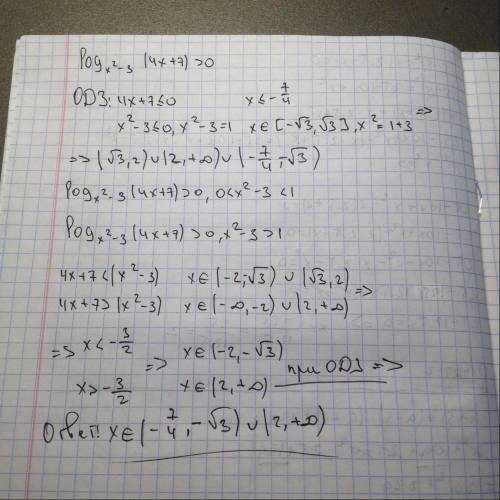 log_{x²-3} (4x+7) > 0
ОДЗ: 4x+7≤0 x≤-7/4
x²-3≤0, x²-3=1 x∈[-√3,√3], x²=1+3 =>
=> (√3,2)∪(2,+∞)∪(-7/4,-√3)
log_{x²-3} (4x+7)>0, 0<x²-3<1
log_{x²-3} (4x+7)>0, x²-3>1
4x+7<(x²-3) x∈(-2;√3) ∪ (√3,2)
4x+7>(x²-3) x∈(-∞,-2) ∪ (2,+∞) =>
=> x<-3/2 => x∈(-2,-√3)
x>-3/2 x∈(2,+∞) при ОДЗ =>
Ответ: x∈(-7/4,-√3)∪(2,+∞)